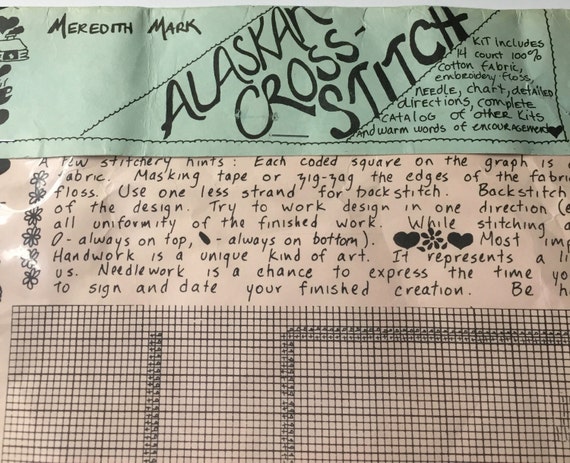 MEREDITH MARK
ALASKAN
CROSS-
STITCH
KIT INCludes
14 count 100%
cotton fabric,
embroidery floss,
needle, chart, detailed
directions, complete
catalog of other kits
and warm words of encouragement
A few stitchery hints: Each coded square on the graph is
fabric. Masking tape or zig-zag the edges of the fabri
floss. Use one less strand for backstitch. Backstitch
of the design. Try to work design in one direction (e
all uniformity of the finished work. While stitching a
0 - always on top, - always on bottom). Most imp
Handwork is a unique kind of art. It represents a li
us. Needlework is a chance to express the time yo
to sign and date your finished creation. Be h